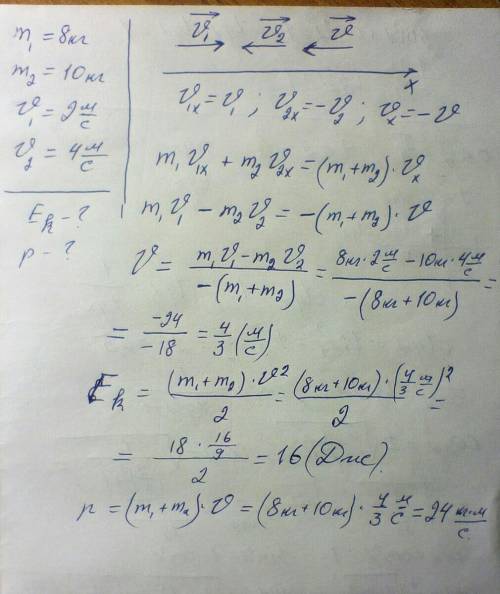 m₁ = 8кг
m₂ = 10кг
v₁ = 2 м/с
v₂ = 4 м/с
E_k - ?
p - ?
v₁ v₂ v
x
v₁ₓ = v₁ ; v₂ₓ = -v₂ ; vₓ = -v
m₁v₁ₓ + m₂v₂ₓ = (m₁+m₂)·vₓ
m₁v₁ - m₂v₂ = -(m₁+m₂)·v
v = (m₁v₁ - m₂v₂)/(-(m₁+m₂)) = (8кг·2 м/с - 10кг·4 м/с)/(-(8кг+10кг)) =
= -24/-18 = 4/3 (м/с)
E_k = (m₁+m₂)·v²/2 = (8кг+10кг)·(4/3 м/с)²/2 =
= (18·16/9)/2 = 16 (Дж).
p = (m₁+m₂)·v = (8кг+10кг)·4/3 м/с = 24 кг·м/с